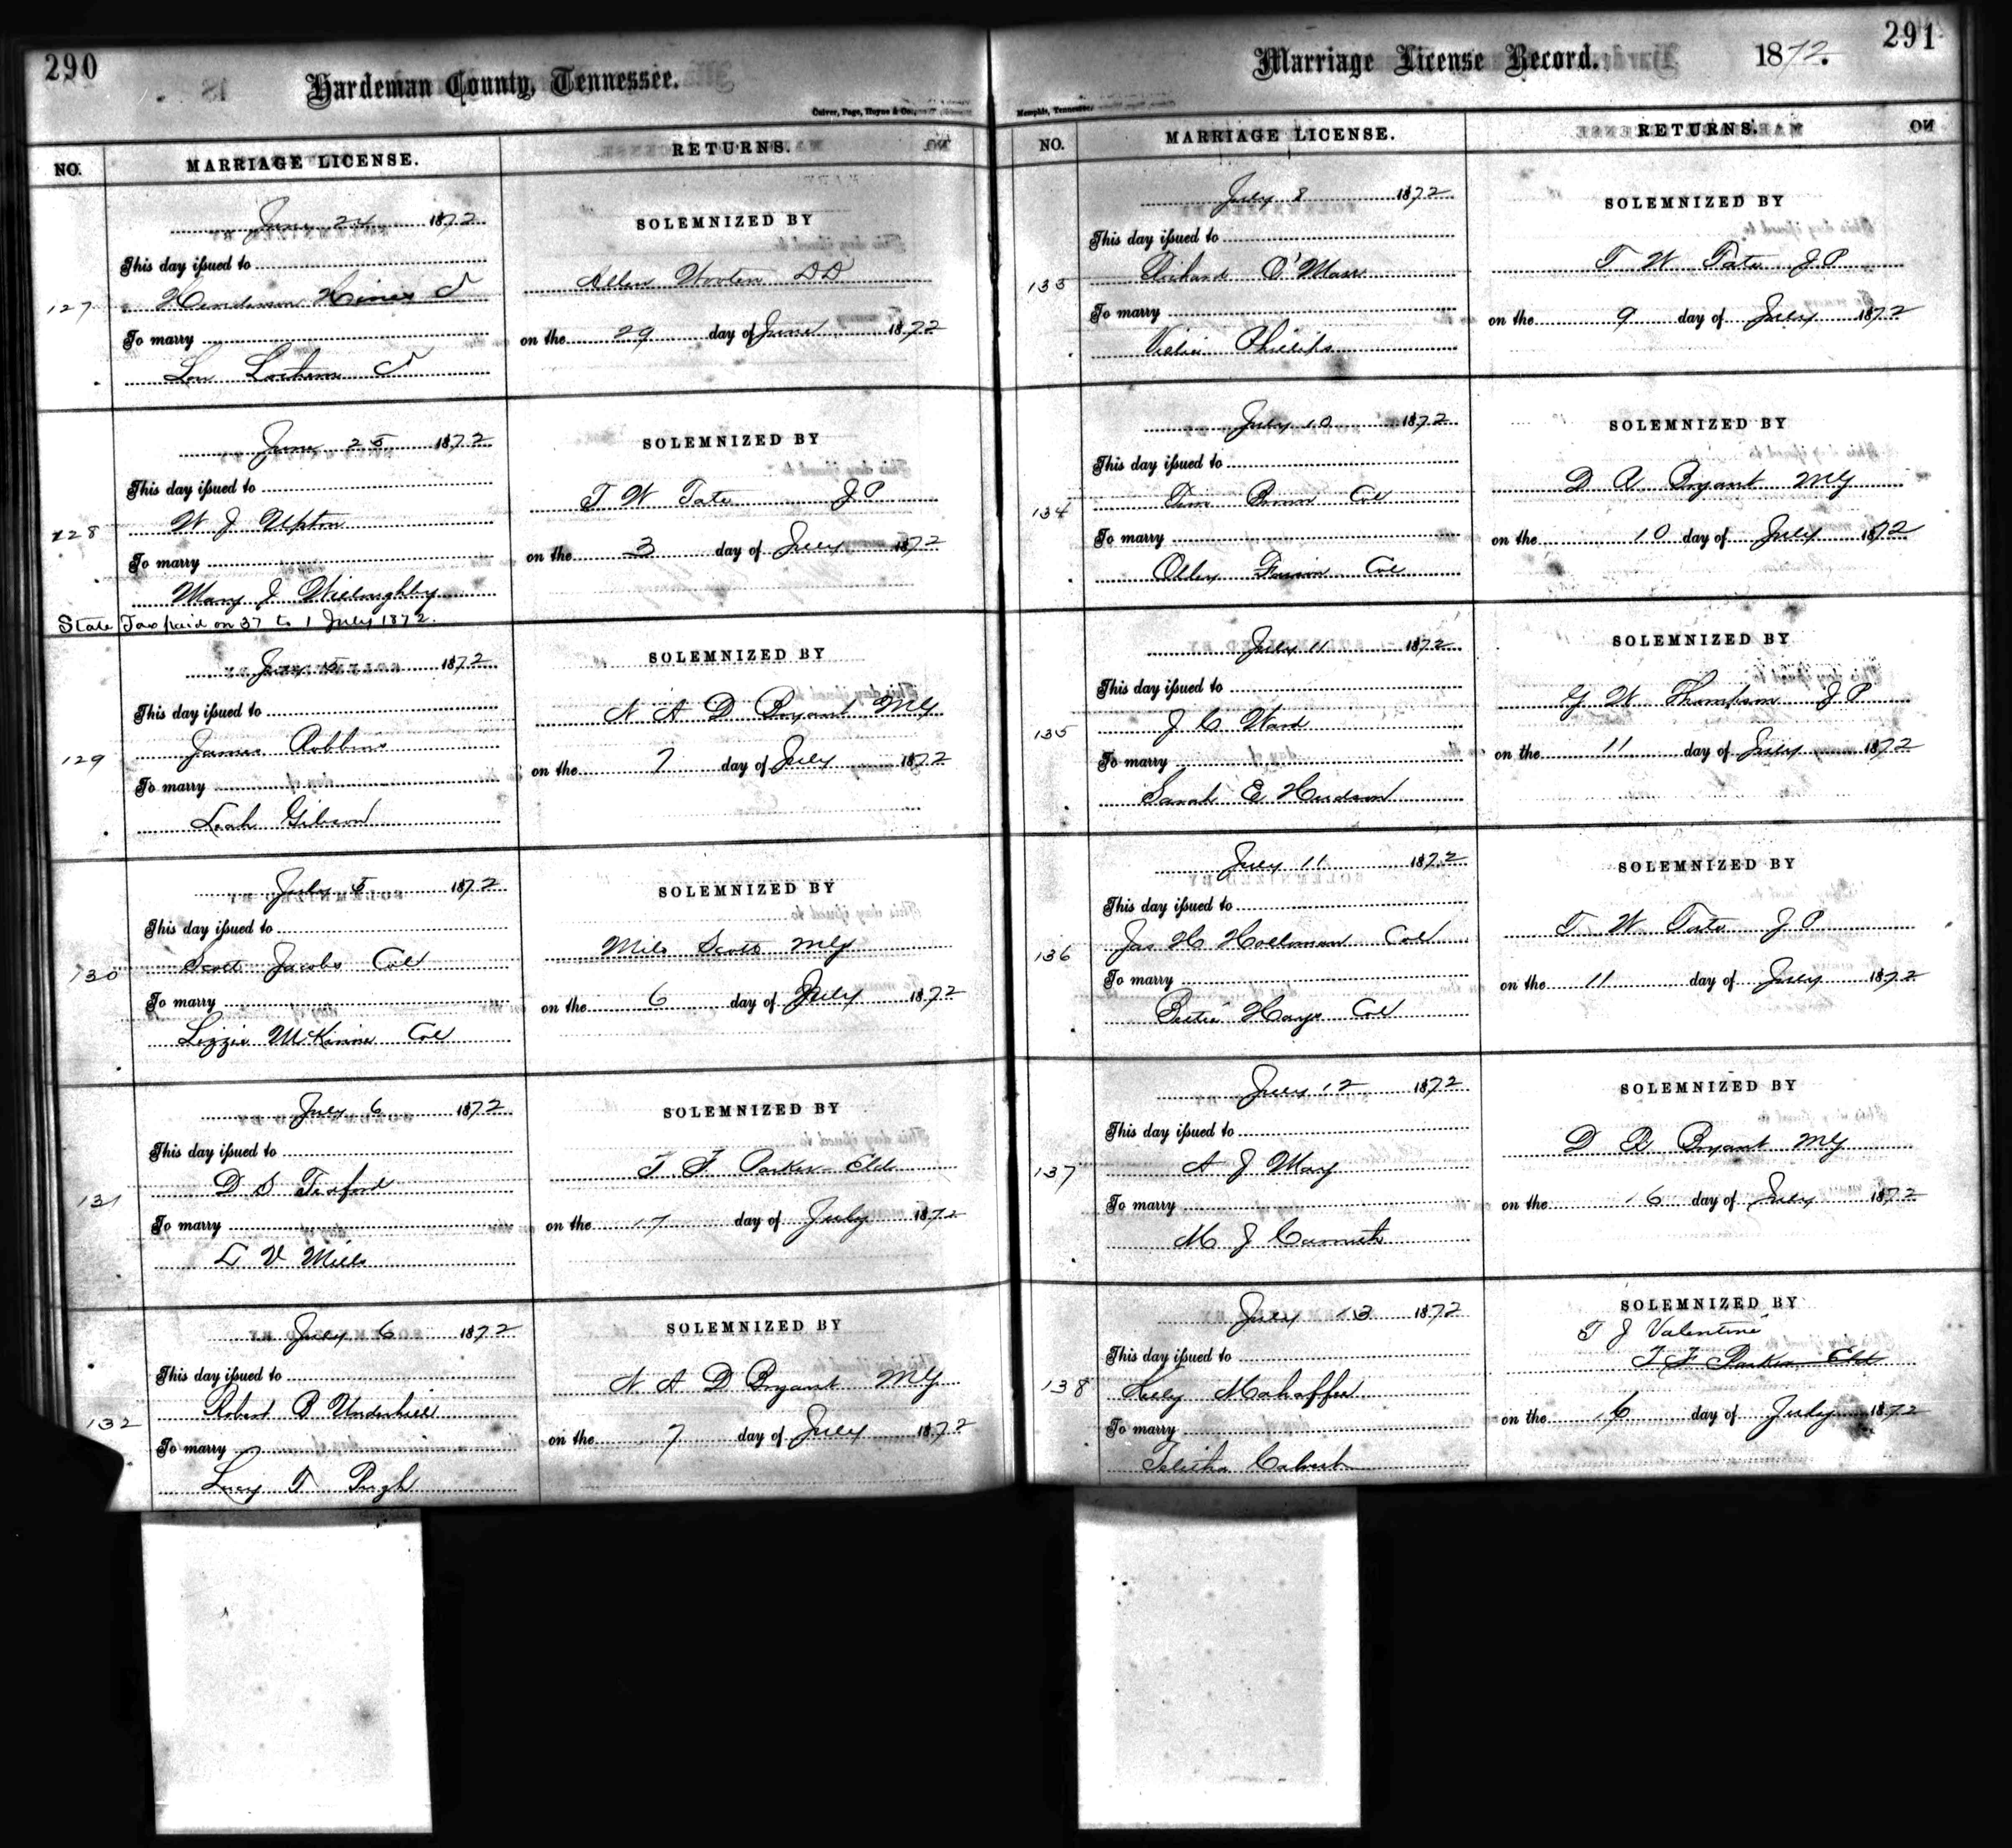 290
Hardeman County, Tennessee.
Culver, Page, Hoyne & Co.,
NO. MARRIAGE LICENSE. RETURNS.
127
June 24 1872
This day issued to
Henderson Hines
To marry
Lou
SOLEMNIZED BY
Allen Wooten DD
on the 29 day of June 1872
128
June 25 1872
This day issued to
W J Upton
To marry
Mary J Willoughby
SOLEMNIZED BY
T W Tate J P
on the 3 day of July 1872
State Tax paid on 37 to 1 July 1872.
129
July 5 1872
This day issued to
James Robbins
To marry
Leah Gibson
SOLEMNIZED BY
N A D Bryant MG
on the 7 day of July 1872
130
July 5 1872
This day issued to
Scott Jacobs Col
To marry
Lizzie McKinnie Col
SOLEMNIZED BY
Milo Scott MG
on the 6 day of July 1872
131
July 6 1872
This day issued to
D S
To marry
L V Mills
SOLEMNIZED BY
T F Parker Eld
on the 17 day of July 1872
132
July 6 1872
This day issued to
Robert B Underhill
To marry
Lucy T Pugh
SOLEMNIZED BY
N A D Bryant MG
on the 7 day of July 1872
291
Marriage License Record. 1872.
Memphis, Tennessee
NO. MARRIAGE LICENSE. RETURNS.
133
July 8 1872
This day issued to
Richard
To marry
Phillips
SOLEMNIZED BY
T W Tate J P
on the 9 day of July 1872
134
July 10 1872
This day issued to
Col
To marry
Olley Col
SOLEMNIZED BY
D A Bryant MG
on the 10 day of July 1872
135
July 11 1872
This day issued to
J C Ward
To marry
Sarah E Hudson
SOLEMNIZED BY
G W Thompson J P
on the 11 day of July 1872
136
July 11 1872
This day issued to
Jas H Holloman Col
To marry
Bettie Hays Col
SOLEMNIZED BY
T W Tate J P
on the 11 day of July 1872
137
July 12 1872
This day issued to
A J May
To marry
M J
SOLEMNIZED BY
D A Bryant MG
on the 16 day of July 1872
138
July 13 1872
This day issued to
Mahaffee
To marry
Telitha Calvert
SOLEMNIZED BY
T J Valentine
T F Parker Eld
on the 16 day of July 1872